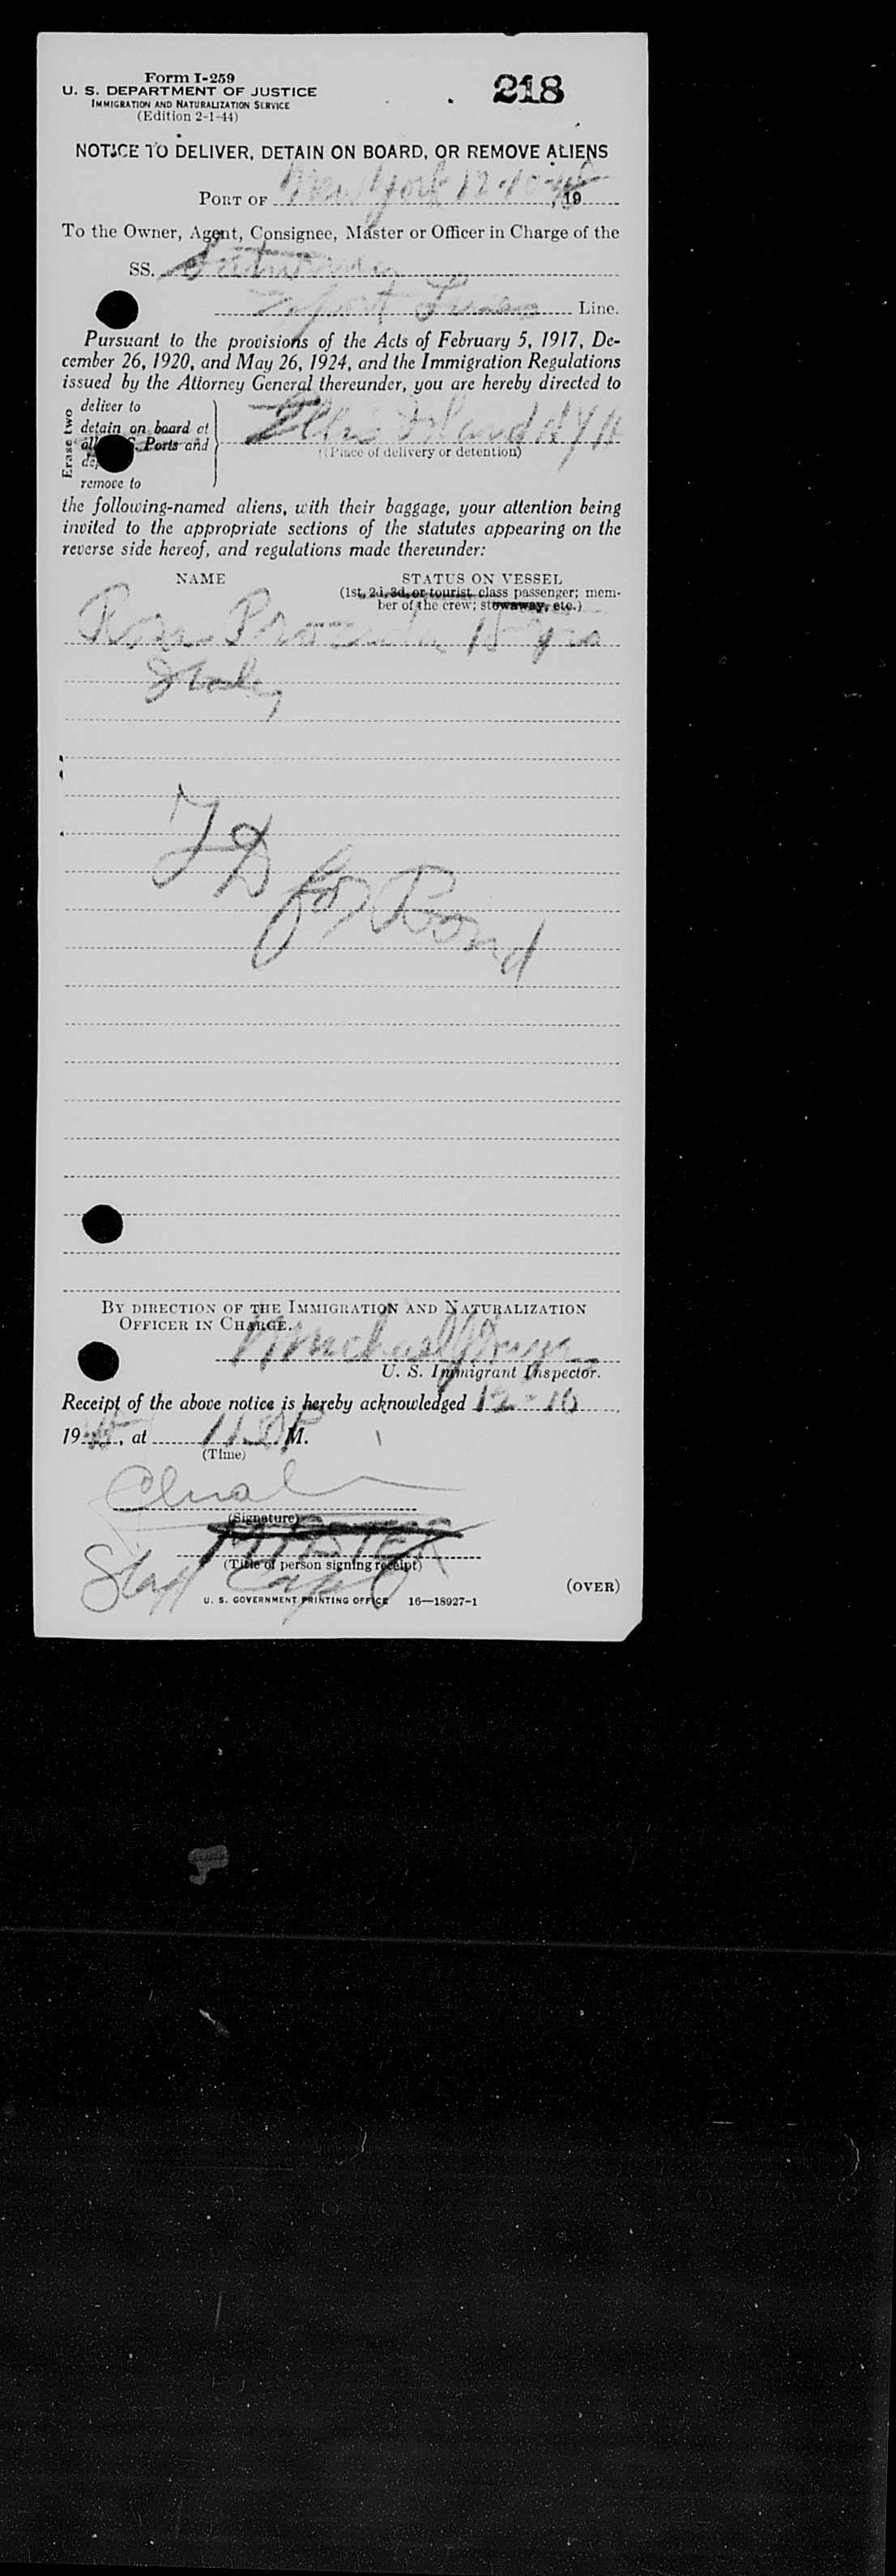 Form I-259
218
U. S. DEPARTMENT OF JUSTICE
IMMIGRATION AND NATURALIZATION SERVICE
(Edition 2-1-44)
NOTICE TO DELIVER, DETAIN ON BOARD, OR REMOVE ALIENS
PORT OF New York 12-10-, 19
To the Owner, Agent, Consignee, Master or Officer in Charge of the
SS.
Line.
Pursuant to the provisions of the Acts of February 5, 1917, De-
cember 26, 1920, and May 26, 1924, and the Immigration Regulations
issued by the Attorney General thereunder, you are hereby directed to
Erase two
deliver to
detain on board at
Ellis Island N Y H
all S. Ports and
(Place of delivery or detention)
remove to
the following-named aliens, with their baggage, your attention being
invited to the appropriate sections of the statutes appearing on the
reverse side hereof, and regulations made thereunder:
NAME STATUS ON VESSEL
(1st, 2d, 3d, or tourist class passenger; mem-
ber of the crew; stowaway, etc.)
15 yrs
Italy
T D for Bond
BY DIRECTION OF THE IMMIGRATION AND NATURALIZATION
OFFICER IN CHARGE.
Michael J
U. S. Immigrant Inspector.
Receipt of the above notice is hereby acknowledged 12-10
19, at M.
(Time)
(Signature)
MASTER
(Title of person signing receipt)
Staff Capt
(OVER)
U. S. GOVERNMENT PRINTING OFFICE 16—18927-1